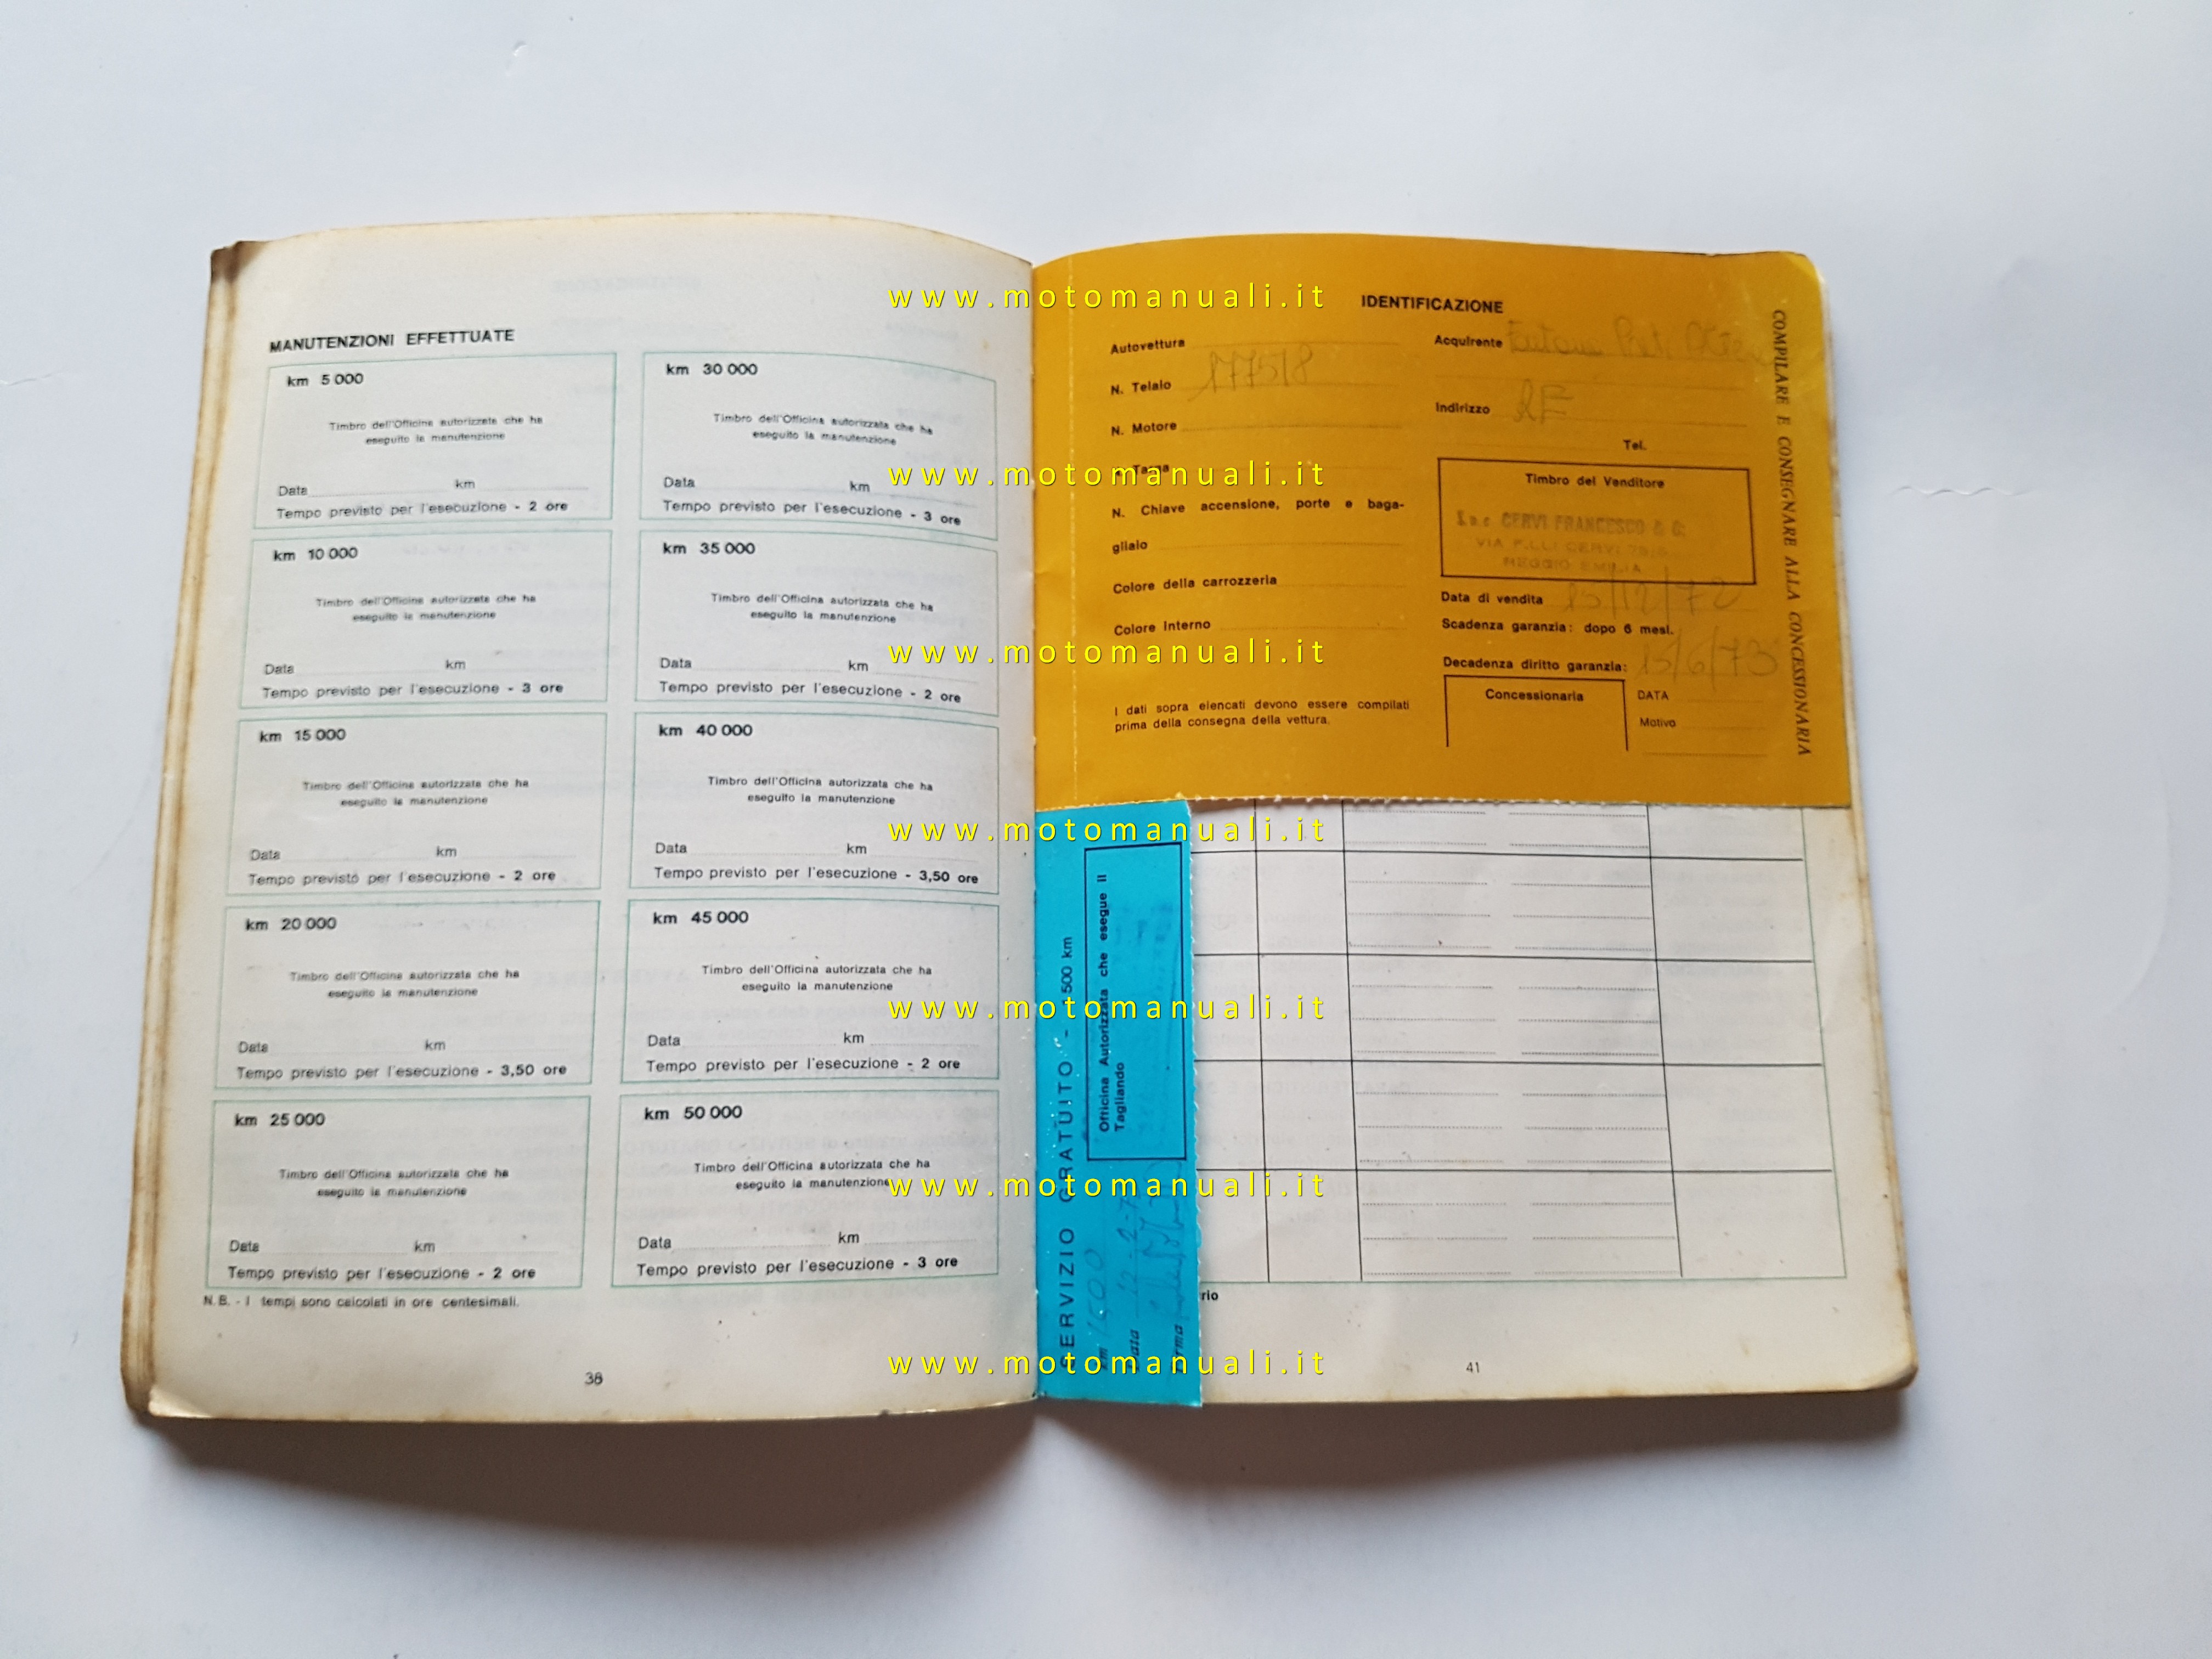 MANUTENZIONI EFFETTUATE
km 5 000
Timbro dell'Officina autorizzata che ha
eseguito la manutenzione
Data km
Tempo previsto per l'esecuzione - 2 ore
km 10 000
Timbro dell'Officina autorizzata che ha
eseguito la manutenzione
Data km
Tempo previsto per l'esecuzione - 3 ore
km 15 000
Timbro dell'Officina autorizzata che ha
eseguito la manutenzione
Data km
Tempo previsto per l'esecuzione - 2 ore
km 20 000
Timbro dell'Officina autorizzata che ha
eseguito la manutenzione
Data km
Tempo previsto per l'esecuzione - 3,50 ore
km 25 000
Timbro dell'Officina autorizzata che ha
eseguito la manutenzione
Data km
Tempo previsto per l'esecuzione - 2 ore
N.B. - I tempi sono calcolati in ore centesimali.
km 30 000
Timbro dell'Officina autorizzata che ha
eseguito la manutenzione
Data km
Tempo previsto per l'esecuzione - 3 ore
km 35 000
Timbro dell'Officina autorizzata che ha
eseguito la manutenzione
Data km
Tempo previsto per l'esecuzione - 2 ore
km 40 000
Timbro dell'Officina autorizzata che ha
eseguito la manutenzione
Data km
Tempo previsto per l'esecuzione - 3,50 ore
km 45 000
Timbro dell'Officina autorizzata che ha
eseguito la manutenzione
Data km
Tempo previsto per l'esecuzione - 2 ore
km 50 000
Timbro dell'Officina autorizzata che ha
eseguito la manutenzione
Data km
Tempo previsto per l'esecuzione - 3 ore
38
IDENTIFICAZIONE
Autovettura
N. Telaio 177518
N. Motore
Targa
N. Chiave accensione, porte e baga-
gliaio
Colore della carrozzeria
Colore Interno
I dati sopra elencati devono essere compilati
prima della consegna della vettura.
Acquirente
Indirizzo RE
Tel.
Timbro del Venditore
S.n.c CERVI FRANCESCO & C.
VIA F.LLI CERVI
REGGIO EMILIA
Data di vendita 15/12/72
Scadenza garanzia: dopo 6 mesi.
Decadenza diritto garanzia: 15/6/73
Concessionaria
DATA
Motivo
COMPILARE E CONSEGNARE ALLA CONCESSIONARIA
SERVIZIO GRATUITO - 500 km
Officina Autorizzata che esegue il
Tagliando
km 1500
Data
Firma
rio
41
www.motomanuali.it
www.motomanuali.it
www.motomanuali.it
www.motomanuali.it
www.motomanuali.it
www.motomanuali.it
www.motomanuali.it